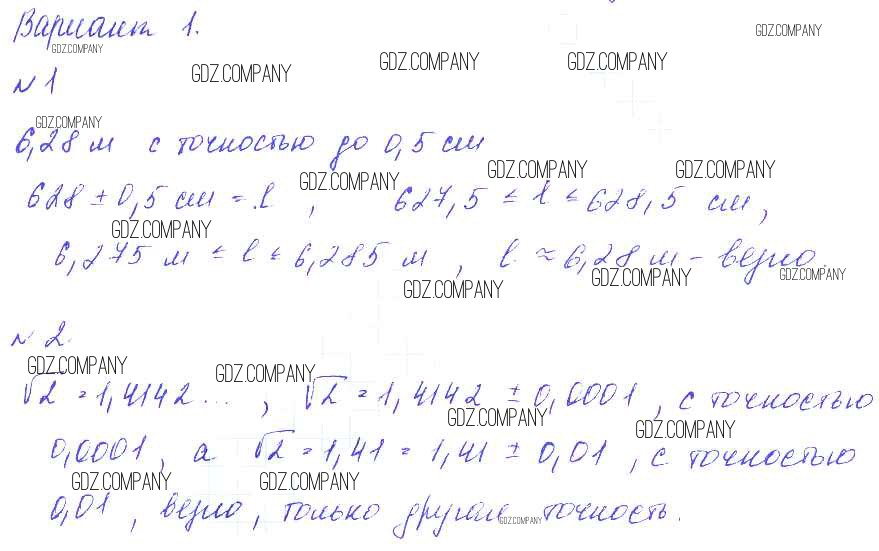 Вариант 1.
GDZ.COMPANY
GDZ.COMPANY GDZ.COMPANY GDZ.COMPANY GDZ.COMPANY
№1
GDZ.COMPANY
6,28 м с точностью до 0,5 см
GDZ.COMPANY GDZ.COMPANY GDZ.COMPANY
628 ± 0,5 см = l , 627,5 ≤ l ≤ 628,5 см,
GDZ.COMPANY
6,275 м ≤ l ≤ 6,285 м , l ≈ 6,28 м - верно.
GDZ.COMPANY GDZ.COMPANY GDZ.COMPANY
№ 2.
GDZ.COMPANY GDZ.COMPANY
√2 = 1,4142... , √2 = 1,4142 ± 0,0001 , с точностью
GDZ.COMPANY GDZ.COMPANY
0,0001, а √2 = 1,41 = 1,41 ± 0,01 , с точностью
GDZ.COMPANY GDZ.COMPANY
0,01 , верно, только другая точность.
GDZ.COMPANY